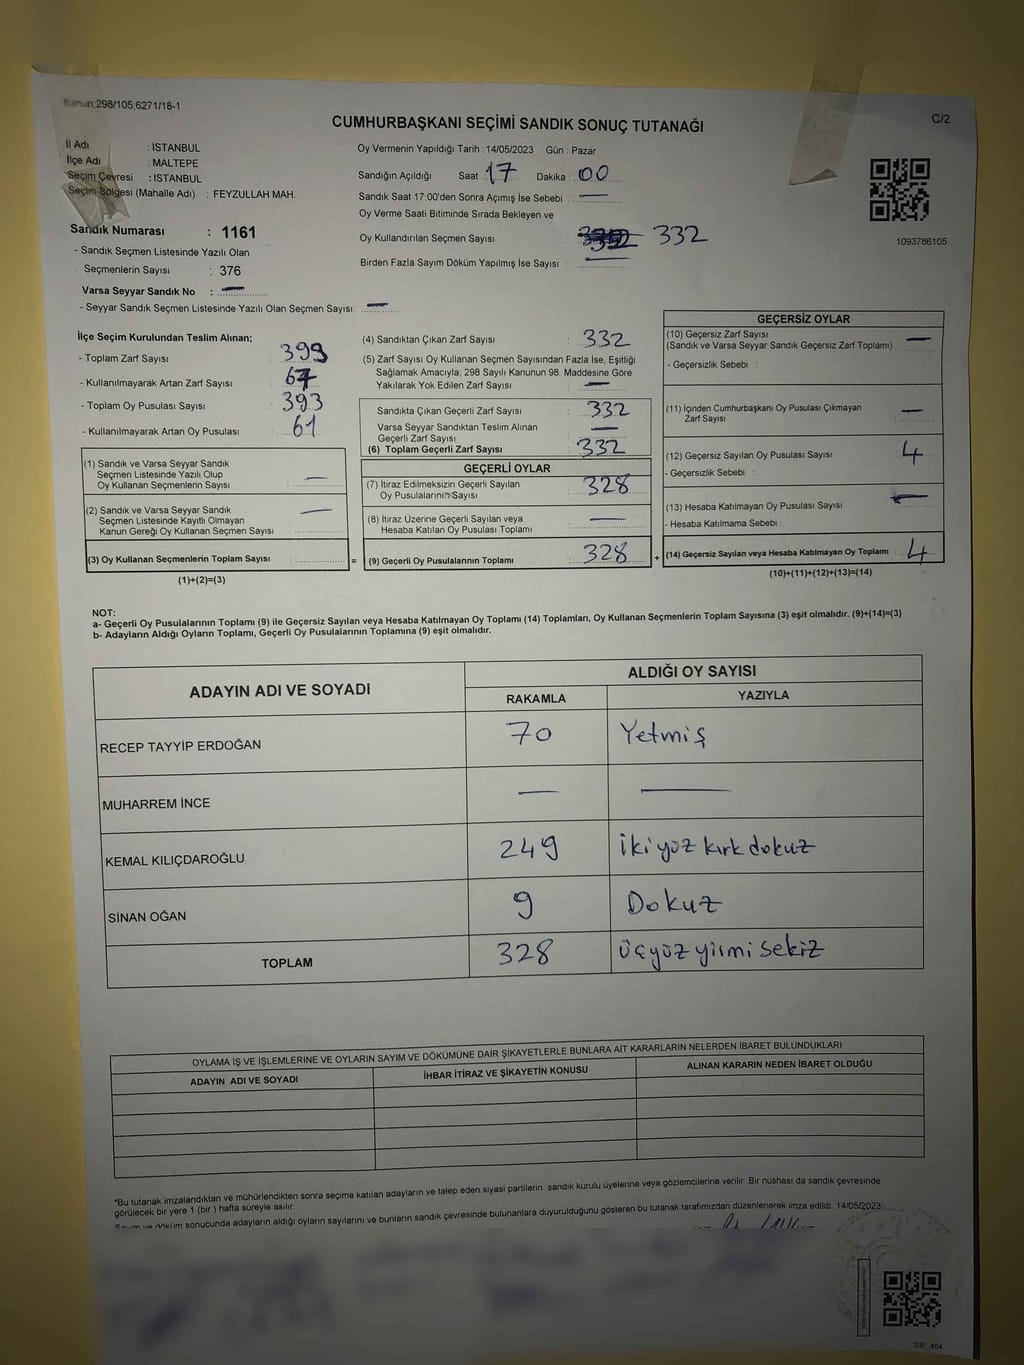 Kanun;298/105;6271/18-1
C/2
CUMHURBAŞKANI SEÇİMİ SANDIK SONUÇ TUTANAĞI
İl Adı : İSTANBUL
İlçe Adı : MALTEPE
Seçim Çevresi : İSTANBUL
Seçim Bölgesi (Mahalle Adı) : FEYZULLAH MAH.
Sandık Numarası : 1161
- Sandık Seçmen Listesinde Yazılı Olan
Seçmenlerin Sayısı : 376
Varsa Seyyar Sandık No : —
- Seyyar Sandık Seçmen Listesinde Yazılı Olan Seçmen Sayısı: —
Oy Vermenin Yapıldığı Tarih : 14/05/2023 Gün : Pazar
Sandığın Açıldığı Saat 17 Dakika : 00
Sandık Saat 17:00'den Sonra Açımış İse Sebebi : —
Oy Verme Saati Bitiminde Sırada Bekleyen ve
Oy Kullandırılan Seçmen Sayısı : 332
Birden Fazla Sayım Döküm Yapılmış İse Sayısı : —
1093786105
İlçe Seçim Kurulundan Teslim Alınan;
- Toplam Zarf Sayısı : 399
- Kullanılmayarak Artan Zarf Sayısı : 67
- Toplam Oy Pusulası Sayısı : 393
- Kullanılmayarak Artan Oy Pusulası : 61
(1) Sandık ve Varsa Seyyar Sandık
Seçmen Listesinde Yazılı Olup
Oy Kullanan Seçmenlerin Sayısı : —
(2) Sandık ve Varsa Seyyar Sandık
Seçmen Listesinde Kayıtlı Olmayan
Kanun Gereği Oy Kullanan Seçmen Sayısı : —
(3) Oy Kullanan Seçmenlerin Toplam Sayısı : =
(1)+(2)=(3)
(4) Sandıktan Çıkan Zarf Sayısı : 332
(5) Zarf Sayısı Oy Kullanan Seçmen Sayısından Fazla İse, Eşitliği
Sağlamak Amacıyla, 298 Sayılı Kanunun 98. Maddesine Göre
Yakılarak Yok Edilen Zarf Sayısı : —
Sandıkta Çıkan Geçerli Zarf Sayısı : 332
Varsa Seyyar Sandıktan Teslim Alınan
Geçerli Zarf Sayısı : —
(6) Toplam Geçerli Zarf Sayısı : 332
GEÇERLİ OYLAR
(7) İtiraz Edilmeksizin Geçerli Sayılan
Oy Pusulalarının Sayısı : 328
(8) İtiraz Üzerine Geçerli Sayılan veya
Hesaba Katılan Oy Pusulası Toplamı : —
(9) Geçerli Oy Pusulalarının Toplamı : 328 +
GEÇERSİZ OYLAR
(10) Geçersiz Zarf Sayısı
(Sandık ve Varsa Seyyar Sandık Geçersiz Zarf Toplamı) : —
- Geçersizlik Sebebi :
(11) İçinden Cumhurbaşkanı Oy Pusulası Çıkmayan
Zarf Sayısı : —
(12) Geçersiz Sayılan Oy Pusulası Sayısı : 4
- Geçersizlik Sebebi :
(13) Hesaba Katılmayan Oy Pusulası Sayısı : —
- Hesaba Katılmama Sebebi :
(14) Geçersiz Sayılan veya Hesaba Katılmayan Oy Toplamı : 4
(10)+(11)+(12)+(13)=(14)
NOT:
a- Geçerli Oy Pusulalarının Toplamı (9) ile Geçersiz Sayılan veya Hesaba Katılmayan Oy Toplamı (14) Toplamları, Oy Kullanan Seçmenlerin Toplam Sayısına (3) eşit olmalıdır. (9)+(14)=(3)
b- Adayların Aldığı Oyların Toplamı, Geçerli Oy Pusulalarının Toplamına (9) eşit olmalıdır.
ADAYIN ADI VE SOYADI
ALDIĞI OY SAYISI
RAKAMLA YAZIYLA
RECEP TAYYİP ERDOĞAN 70 Yetmiş
MUHARREM İNCE — —
KEMAL KILIÇDAROĞLU 249 ikiyüz kırk dokuz
SİNAN OĞAN 9 Dokuz
TOPLAM 328 üçyüz yirmi sekiz
OYLAMA İŞ VE İŞLEMLERİNE VE OYLARIN SAYIM VE DÖKÜMÜNE DAİR ŞİKAYETLERLE BUNLARA AİT KARARLARIN NELERDEN İBARET BULUNDUKLARI
ADAYIN ADI VE SOYADI İHBAR İTİRAZ VE ŞİKAYETİN KONUSU ALINAN KARARIN NEDEN İBARET OLDUĞU
*Bu tutanak imzalandıktan ve mühürlendikten sonra seçime katılan adayların ve talep eden siyasi partilerin sandık kurulu üyelerine veya gözlemcilerine verilir .Bir nüshası da sandık çevresinde
görülecek bir yere 1 (bir ) hafta süreyle asılır.
Sayım ve döküm sonucunda adayların aldığı oyların sayılarını ve bunların sandık çevresinde bulunanlara duyurulduğunu gösteren bu tutanak tarafımızdan düzenlenerek imza edildi. 14/05/2023
SSI_404